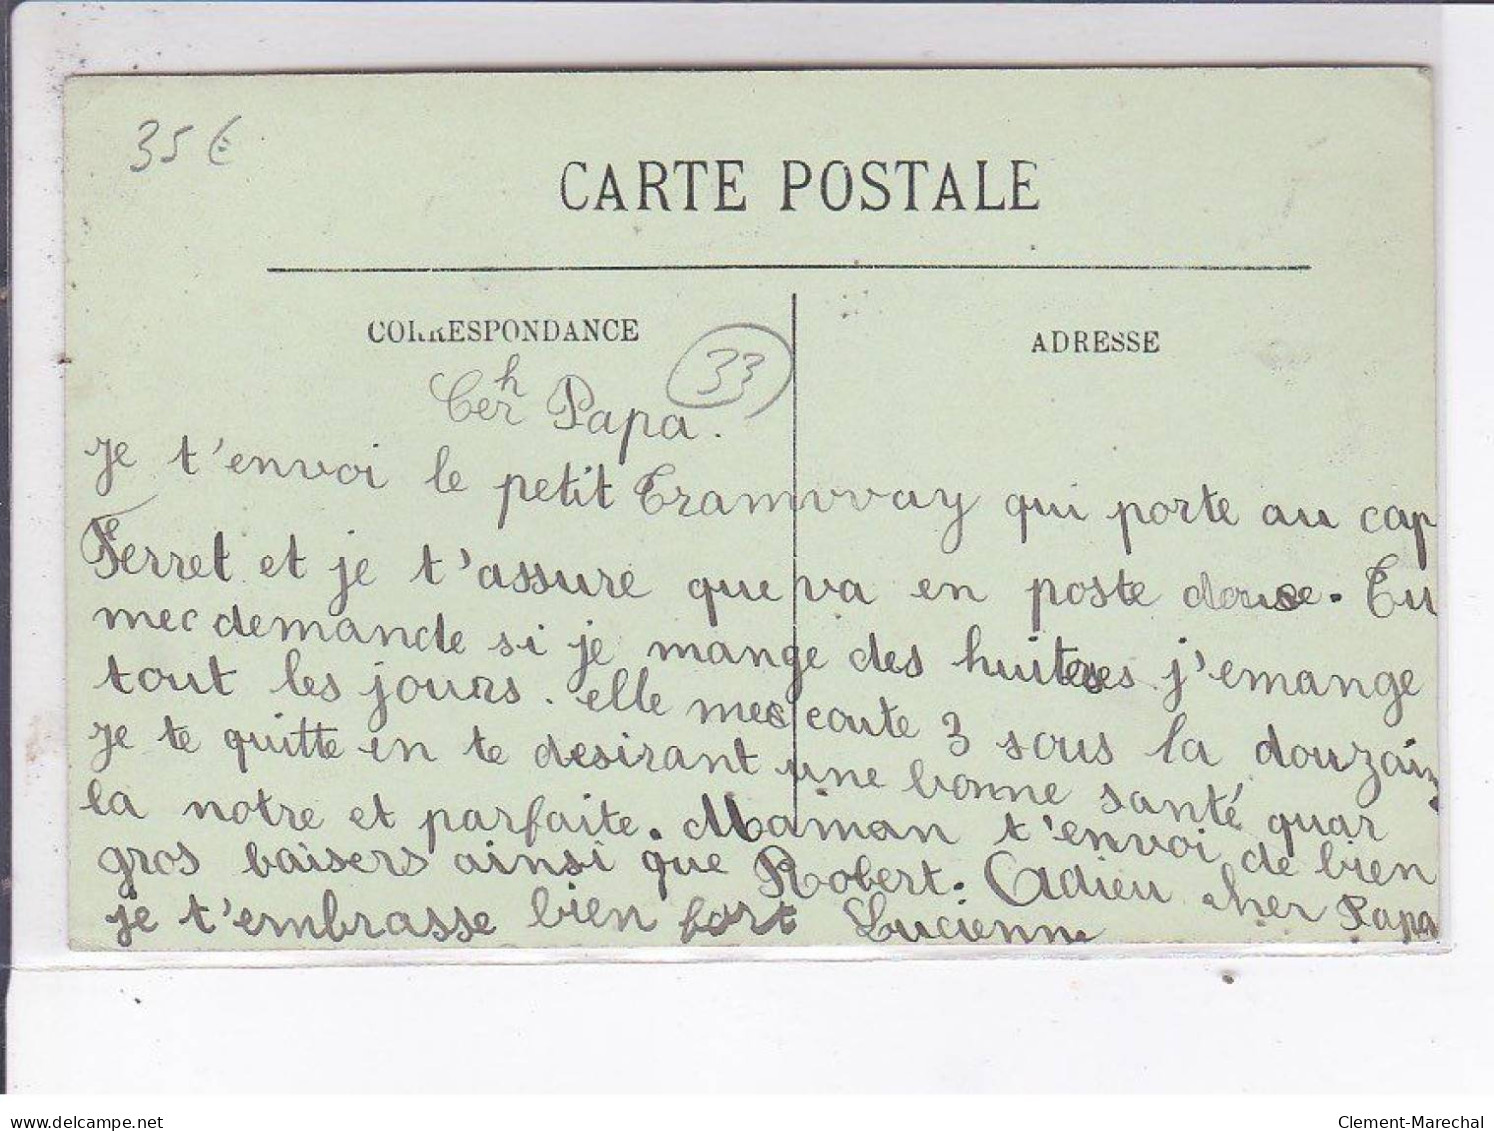 35 €
CARTE POSTALE
CORRESPONDANCE
ADRESSE
33
Cherr Papa.
je t'envoi le petit Tramvvay qui porte au cap
Ferret et je t'assure que va en poste douse. Tu
mec demande si je mange des huiteres j'emange
tout les jours. elle mes coute 3 sous la douzain
je te quitte en te desirant une bonne santé quar
la notre et parfaite. Maman t'envoi de bien
gros baisers ainsi que Robert. Adieu cher Papa
je t'embrasse bien fort Lucienne
delcampe.net
Clement-Marechal